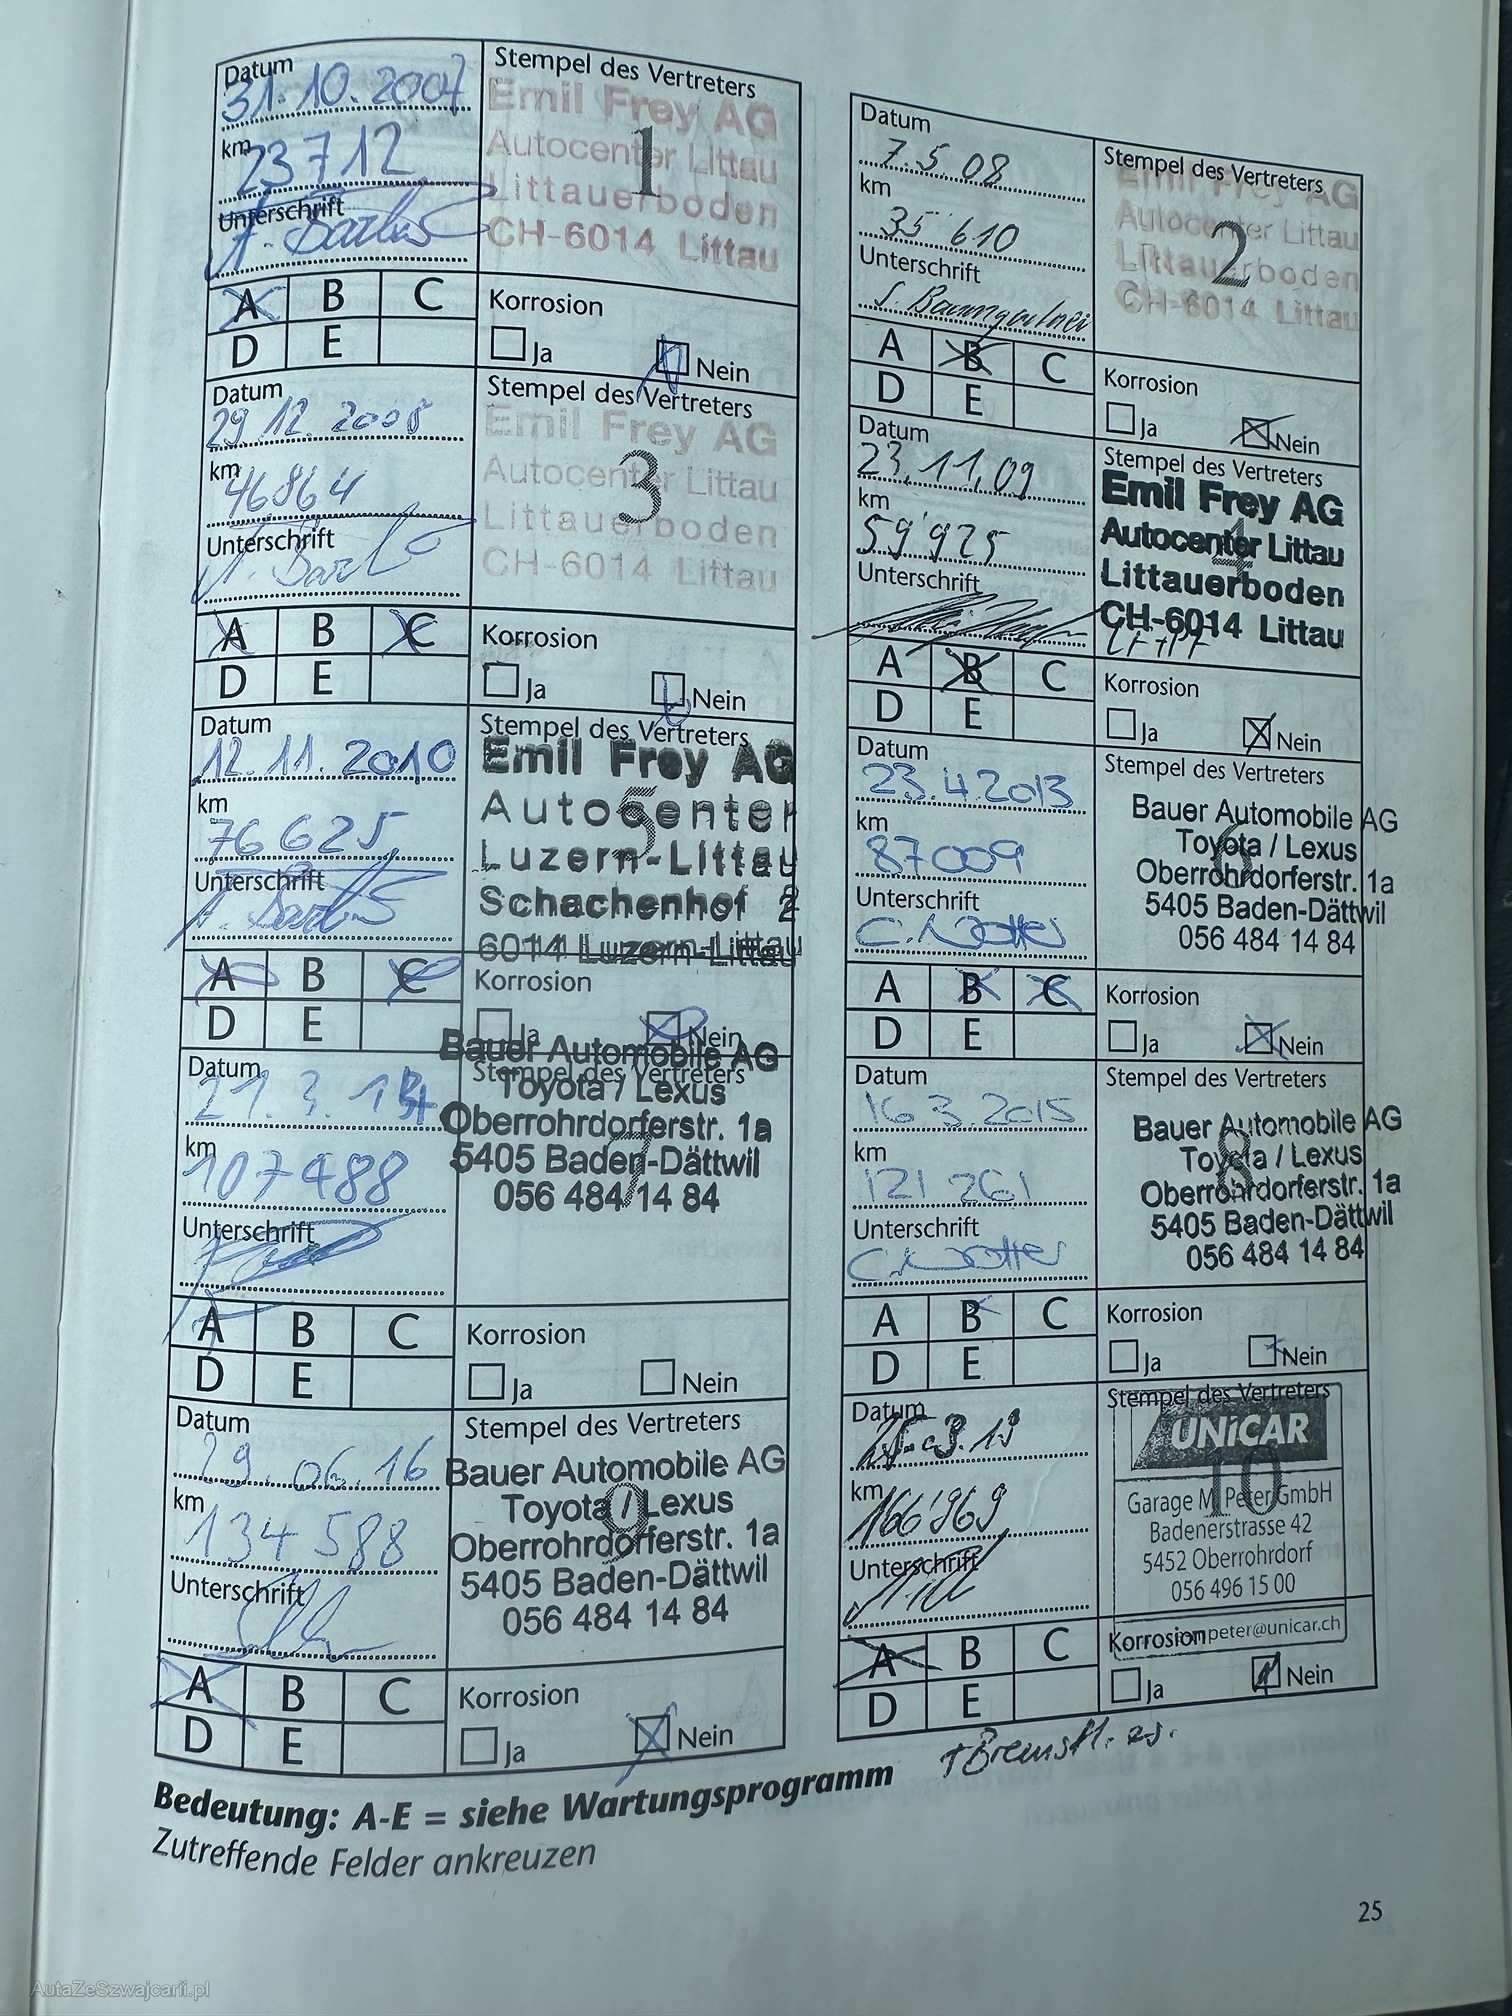 Datum
31.10.2007
km
23712
Unterschrift
Stempel des Vertreters
1
Emil Frey AG
Autocenter Littau
Littauerboden
CH-6014 Littau
A B C
D E
Korrosion
Ja Nein
Datum
7.5.08
km
35'610
Unterschrift
Stempel des Vertreters
2
Emil Frey AG
Autocenter Littau
Littauerboden
CH-6014 Littau
A B C
D E
Korrosion
Ja Nein
Datum
29.12.2008
km
46864
Unterschrift
Stempel des Vertreters
3
Emil Frey AG
Autocenter Littau
Littauerboden
CH-6014 Littau
A B C
D E
Korrosion
Ja Nein
Datum
23.11.09
km
59'925
Unterschrift
Stempel des Vertreters
4
Emil Frey AG
Autocenter Littau
Littauerboden
CH-6014 Littau
A B C
D E
Korrosion
Ja Nein
Datum
12.11.2010
km
76625
Unterschrift
Stempel des Vertreters
5
Emil Frey AG
Autocenter
Luzern-Littau
Schachenhof 2
6014 Luzern-Littau
A B C
D E
Korrosion
Ja Nein
Datum
23.4.2013
km
87009
Unterschrift
Stempel des Vertreters
6
Bauer Automobile AG
Toyota / Lexus
Oberrohrdorferstr. 1a
5405 Baden-Dättwil
056 484 14 84
A B C
D E
Korrosion
Ja Nein
Datum
21.3.14
km
107488
Unterschrift
Stempel des Vertreters
7
Bauer Automobile AG
Toyota / Lexus
Oberrohrdorferstr. 1a
5405 Baden-Dättwil
056 484 14 84
A B C
D E
Korrosion
Ja Nein
Datum
16.3.2015
km
121 261
Unterschrift
Stempel des Vertreters
8
Bauer Automobile AG
Toyota / Lexus
Oberrohrdorferstr. 1a
5405 Baden-Dättwil
056 484 14 84
A B C
D E
Korrosion
Ja Nein
Datum
29.06.16
km
134588
Unterschrift
Stempel des Vertreters
9
Bauer Automobile AG
Toyota / Lexus
Oberrohrdorferstr. 1a
5405 Baden-Dättwil
056 484 14 84
A B C
D E
Korrosion
Ja Nein
Datum
km
166'969
Unterschrift
Stempel des Vertreters
10
UNiCAR
Garage M. Peter GmbH
Badenerstrasse 42
5452 Oberrohrdorf
056 496 15 00
mpeter@unicar.ch
A B C
D E
Korrosion
Ja Nein
Bedeutung: A-E = siehe Wartungsprogramm
Zutreffende Felder ankreuzen
25
AutaZeSzwajcarii.pl